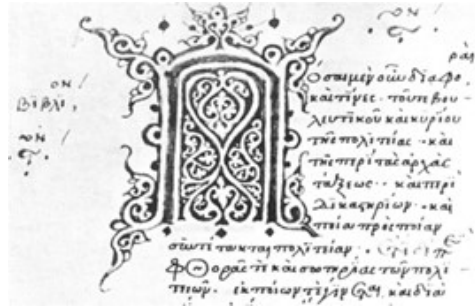 βιβλί
ον
ραὶ
Πόσαι μὲν οὖν διαφο
καὶ τίνες · τοῦ τε βου
λευτικοῦ καὶ κυρίου
τῆς πολιτείας · καὶ
τῆς περὶ τὰς ἀρχὰς
τάξεως · καὶ περὶ
δικαστηρίων · καὶ
ποία πρὸς ποίαν
συντέτακται πολιτείαν
φθορᾶς τε καὶ σωτηρίας τῶν πολι
τειῶν · ἐκ ποίων τε καὶ διὰ